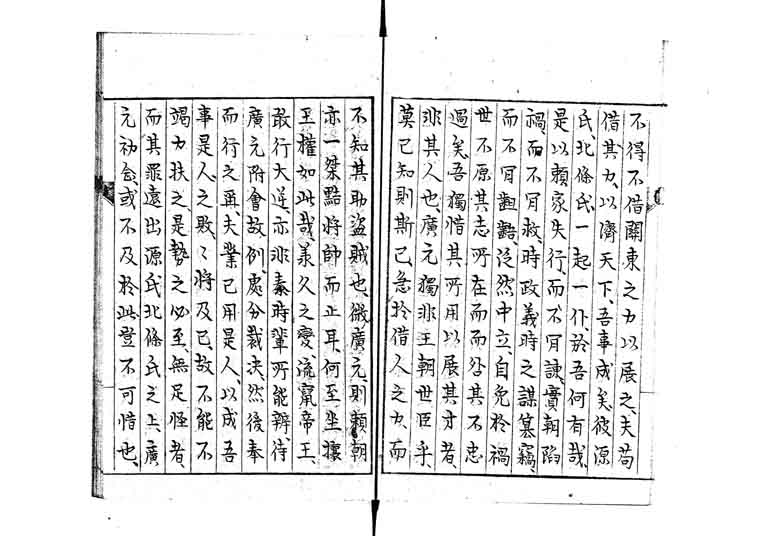 不得不借關東之力以展之、夫苟
借其力、以濟天下、吾事成矣、彼源
氏、北條氏、一起一仆、於吾何有哉、
是以賴家失行、而不肎諫、實朝陷
禍、而不肎救、時政義時之謀篡竊、
而不肎觀𮥼、泛然中立、自免於禍
世不原其志所在、而而咎其不忠
過矣、吾獨惜其所用以展其才者、
非其人也、廣元獨非王朝世臣乎、
莫已知則斯已、急於借人之力、而
不知其助盜賊也、微廣元、則賴朝
亦一桀黠將帥而止耳、何至坐攘
王權如此哉、羕久之變、流竄帝王、
敢行大逆、亦非秦時輩所能辨、待
廣元附會故例、處分裁决、然後奉
而行之再、夫業已用是人、以成吾
事、是人之敗、〻將及已、故不能不
竭力扶之、是勢之必至、無足怪者、
而其罪遠出源氏北條氏之上、廣
元初念、或不及於此、豈不可惜也、